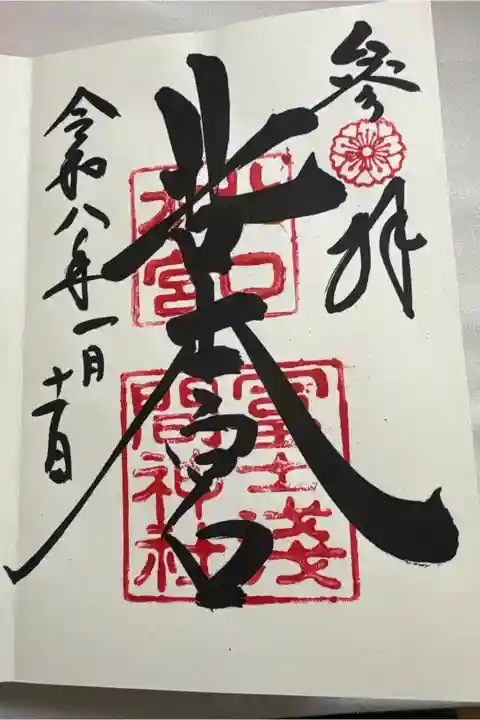 參拝
北口本宮
北口
本宮
冨士淺
間神社
令和八年一月十一日